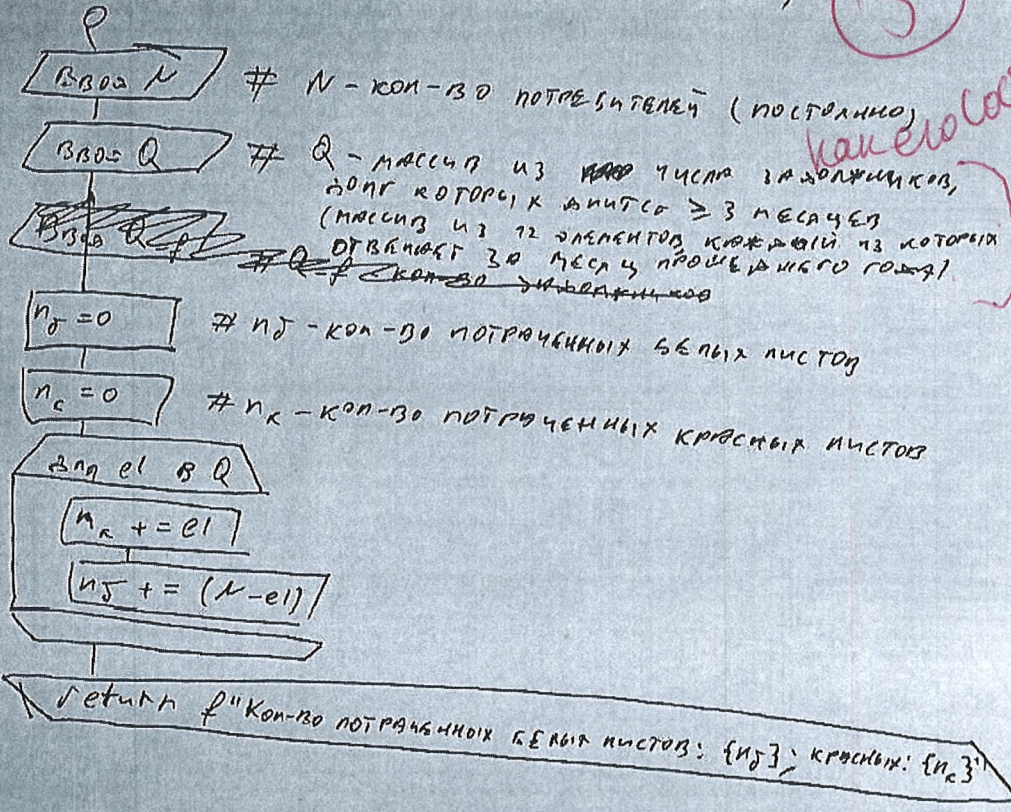 Ввод N # N - кол-во потребителей (постоянно)
Ввод Q # Q - массив из числа задолжников,
долг которых длится ≥ 3 месяцев
(массив из 12 элементов каждый из которых
отвечает за месяц прошедшего года)
Ввод Q
# Q кол-во задолжников
как его сос
nб = 0 # nб - кол-во потраченных белых листов
nс = 0 # nк - кол-во потраченных красных листов
Для el в Q
nк += el
nб += (N-el)
return f"Кол-во потраченных белых листов: {nб}; красных: {nк}"